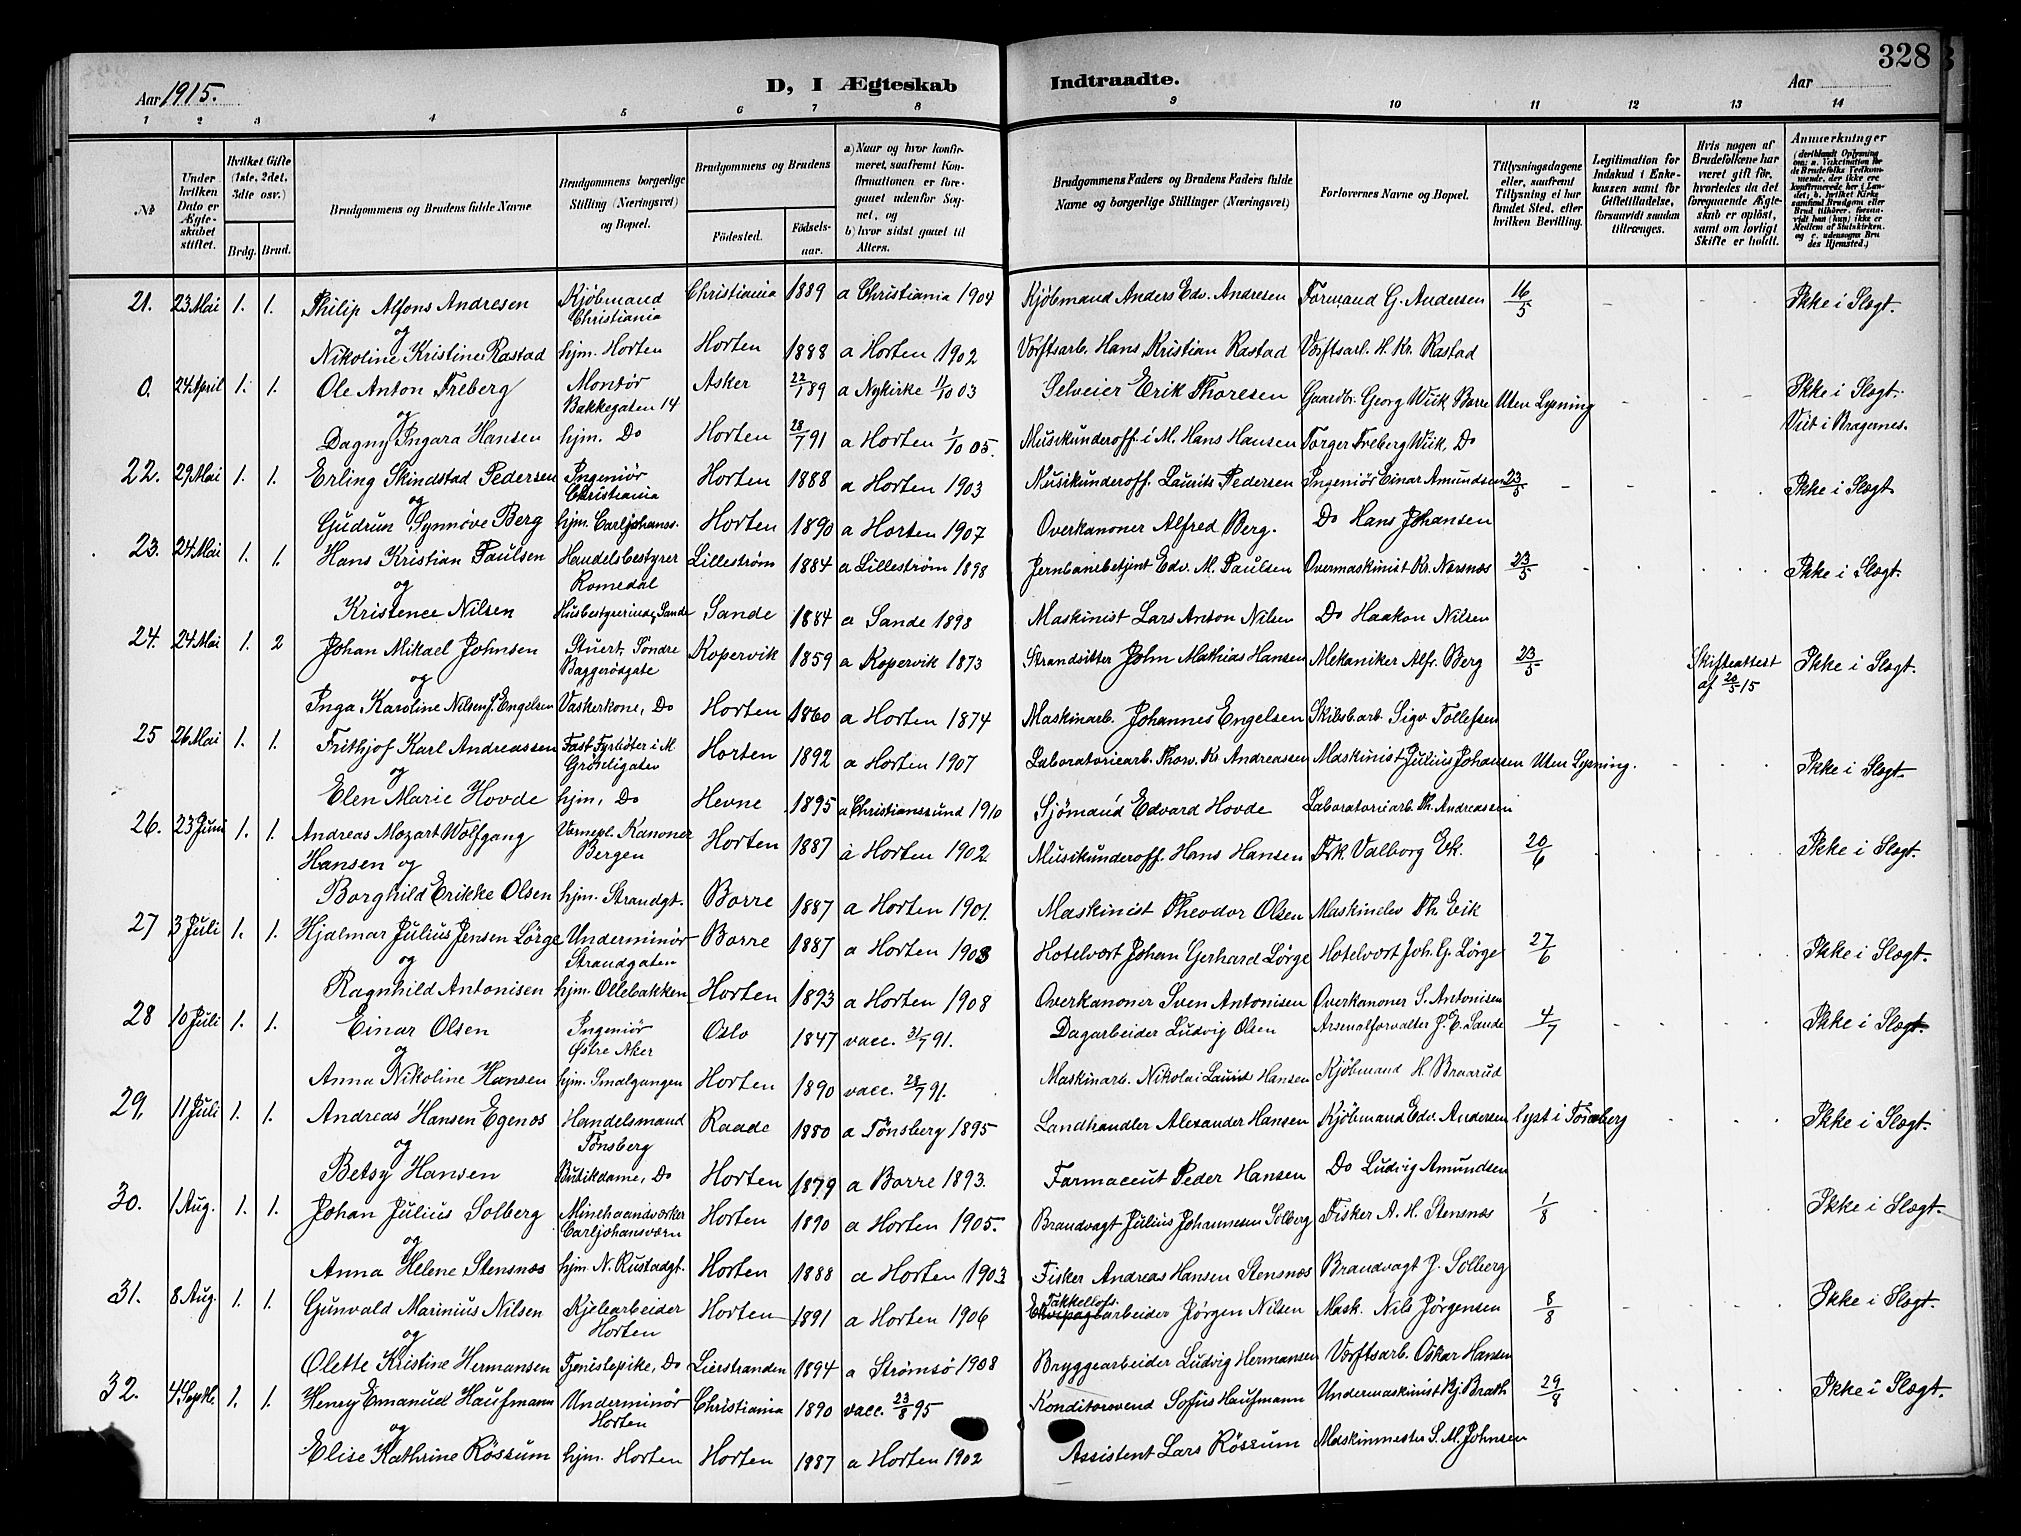 328
Aar 1915.
D, I Ægteskab Indtraadte.
Aar
1 2 3 4 5 6 7 8 9 10 11 12 13 14
No
Under hvilken Dato er Ægteskabet stiftet.
Hvilket Gifte (1ste, 2det, 3dte osv.)
Brdg. Brud.
Brudgommens og Brudens fulde Navne
Brudgommens borgerlige Stilling (Næringsvei) og Bopæl.
Brudgommens og Brudens
Fødested. Fødselsaar.
a) Naar og hvor konfirmeret, saafremt Konfirmationen er foregaaet udenfor Sognet, og
b) hvor sidst gaaet til Alters.
Brudgommens Faders og Brudens Faders fulde Navne og borgerlige Stillinger (Næringsvei)
Forlovernes Navne og Bopæl.
Tillysningsdagene eller, saafremt Tillysning ei har fundet Sted, efter hvilken Bevilling.
Legitimation for Indskud i Enkekassen samt for Giftetilladelse, forsaavidt saadan tiltrænges.
Hvis nogen af Brudefolkene har været gift før, hvorledes da det foregaaende Ægteskab er opløst, samt om lovligt Skifte er holdt.
Anmerkninger (deriblandt Oplysning om: a. Vakcination for de Brudefolks Vedkommende, der ikke ere konfirmerede her i Landet, b. hvilket Kirkesamfund Brudgom eller Brud tilhører, forsaavidt han (hun) ikke er Medlem af Statskirken. og c. udensogns Brudes Hjemsted.)
21. 23 Mai 1. 1. Philip Alfons Andresen Kjöbmand Christiania Christiania 1889 a Christiania 1904 Kjöbmand Anders Edv. Andresen Formand G. Andersen 16/5 - - - Ikke i Slægt.
og
Nikoline Kristine Rastad hjm. Horten Horten 1888 a Horten 1902 Værftsarb. Hans Kristian Rastad Værftsarb. H. Kr. Rastad
0. 24 April 1. 1. Ole Anton Freberg Montör Bakkegaten 14 Asker 22/7 89 a Nykirke 11/10 03 Selveier Erik Thoresen Gaardbr. Georg Wiik Borre Uten Lysning - - - Ikke i Slægt.
og
Dagny Ingara Hansen hjm. Do Horten 28/7 91 a Horten 1/10 05. Musikunderoff. i M. Hans Hansen Torger Freberg Wiik, Do Viet i Bragernes.
22. 29 Mai 1. 1. Erling Skindstad Pedersen Ingeniör Christiania Horten 1888 a Horten 1903 Musikunderoff. Laurits Pedersen Ingeniör Einar Amundsen 23/5 - - - Ikke i Slægt
og
Gudrun Synnöve Berg hjm. Carljohansv. Horten 1890 a Horten 1907 Overkanoner Alfred Berg. Do Hans Johansen
23. 24 Mai 1. 1. Hans Kristian Paulsen Handelsbestyrer Romedal Lilleström 1884 a Lilleström 1898 Jernbanebetjent Edv. M. Paulsen Overmaskinist Kr. Narsnæs 23/5 Ikke i Slægt.
og
Kristence Nilsen Husbestyrerinde, Sande Sande 1884 a Sande 1898 Maskinist Lars Anton Nilsen Do Haakon Nilsen
24. 24 Mai 1. 2 Johan Mikael Johnsen Stuert, Söndre Baggeråsgate Kopervik 1859 a Kopervik 1873 Strandsitter John Mathias Hansen Mekaniker Alfr. Berg 23/5 Skifteattest af 20/5 15 Ikke i Slægt.
og
Inga Karoline Nilsen f. Engelsen Vaskerkone, Do Horten 1860 a Horten 1874 Maskinarb. Johannes Engelsen Skibsb.arb. Sigv. Tollefsen
25 26 Mai 1. 1. Frithjof Karl Andreassen Fast Fyrböter i M. Grönligaten Horten 1892 a Horten 1907 Laboratoriearb. Thow. Kr. Andreassen Maskinist Julius Johansen Uten Lysning. Ikke i Slægt.
og
Elen Marie Hovde hjm, Do Hevne 1895 a Christianssund 1910 Sjömand Edvard Hovde Laboratoriearb. Th. Andreassen
26. 23 Juni 1. 1. Andreas Mozart Wolfgang Værnepl. Kanoner Bergen Horten 1887 a Horten 1902 Musikunderoff. Hans Hansen Frk Valborg Ek. 20/6 Ikke i Slægt.
Hansen og
Borghild Erikke Olsen hjm. Strandgt. Borre 1887 a Horten 1901. Maskinist Theodor Olsen Maskinelev Th. Eik
27 3 Juli 1. 1. Hjalmar Julius Jensen Lörge Underminör Strandgaten Borre 1887 a Horten 1903 Hotelvært Johan Gerhard Lörge Hotelvært Joh. G. Lörge 27/6 Ikke i Slægt.
og
Ragnhild Antonisen hjm. Ollebakken Horten 1893 a Horten 1908 Overkanoner Sven Antonisen Overkanoner S. Antonisen
28 10 Juli 1. 1. Einar Olsen Ingeniör Østre Aker Oslo 1847 vacc. 31/7 91. Dagarbeider Ludvig Olsen Arsenalforvalter J. E. Sande 4/7 Ikke i Slægt.
og
Anna Nikoline Hansen hjm. Smalgangen Horten 1890 vacc. 28/7 91. Maskinarb. Nikolai Laurit Hansen Kjöbmand H. Braarud
29. 11 Juli 1. 1. Andreas Hansen Egenæs Handelsmand Tönsberg Raade 1880 a Tönsberg 1895 Landhandler Alexander Hansen Kjöbmand Edv. Andersen lyst i Tönsberg Ikke i Slægt.
og
Betsy Hansen Butikdame, Do Horten 1879 a Borre 1893. Farmaceut Peder Hansen Do Ludvig Amundsen
30. 1 Aug. 1. 1. Johan Julius Solberg Minehaandværker Carljohansværn Horten 1890 a Horten 1905. Brandvagt Julius Johannesen Solberg Fisker A. H. Stensnæs 1/8 Ikke i Slægt.
og
Anna Helene Stensnæs hjm N. Rustadgt. Horten 1888 a Horten 1903 Fisker Andreas Hansen Stensnæs Brandvagt J. Solberg
31. 8 Aug. 1. 1. Gunvald Marinius Nilsen Kjelearbeider Horten Horten 1891 a Horten 1906 Takkellofs. Ekvipagearbeider Jörgen Nilsen Mask. Nils Jörgensen 8/8 Ikke i Slægt.
og
Olette Kristine Hermansen Tjenestepike, Do Lierstranden 1894 a Strömsö 1908 Bryggearbeider Ludvig Hermansen Værftsarb. Oskar Hansen
32. 4 Septb. 1. 1. Henry Emanuel Haufmann Underminör Horten Christiania 1890 vacc. 23/8 95 Konditorsvend Sofus Haufmann Undermaskinist Kj. Brath 29/8 Ikke i Slægt.
og
Elise Kathrine Rössum hjm. Horten Horten 1887 a Horten 1902 Assistent Lars Rössum Maskinmester S. M. Johnsen